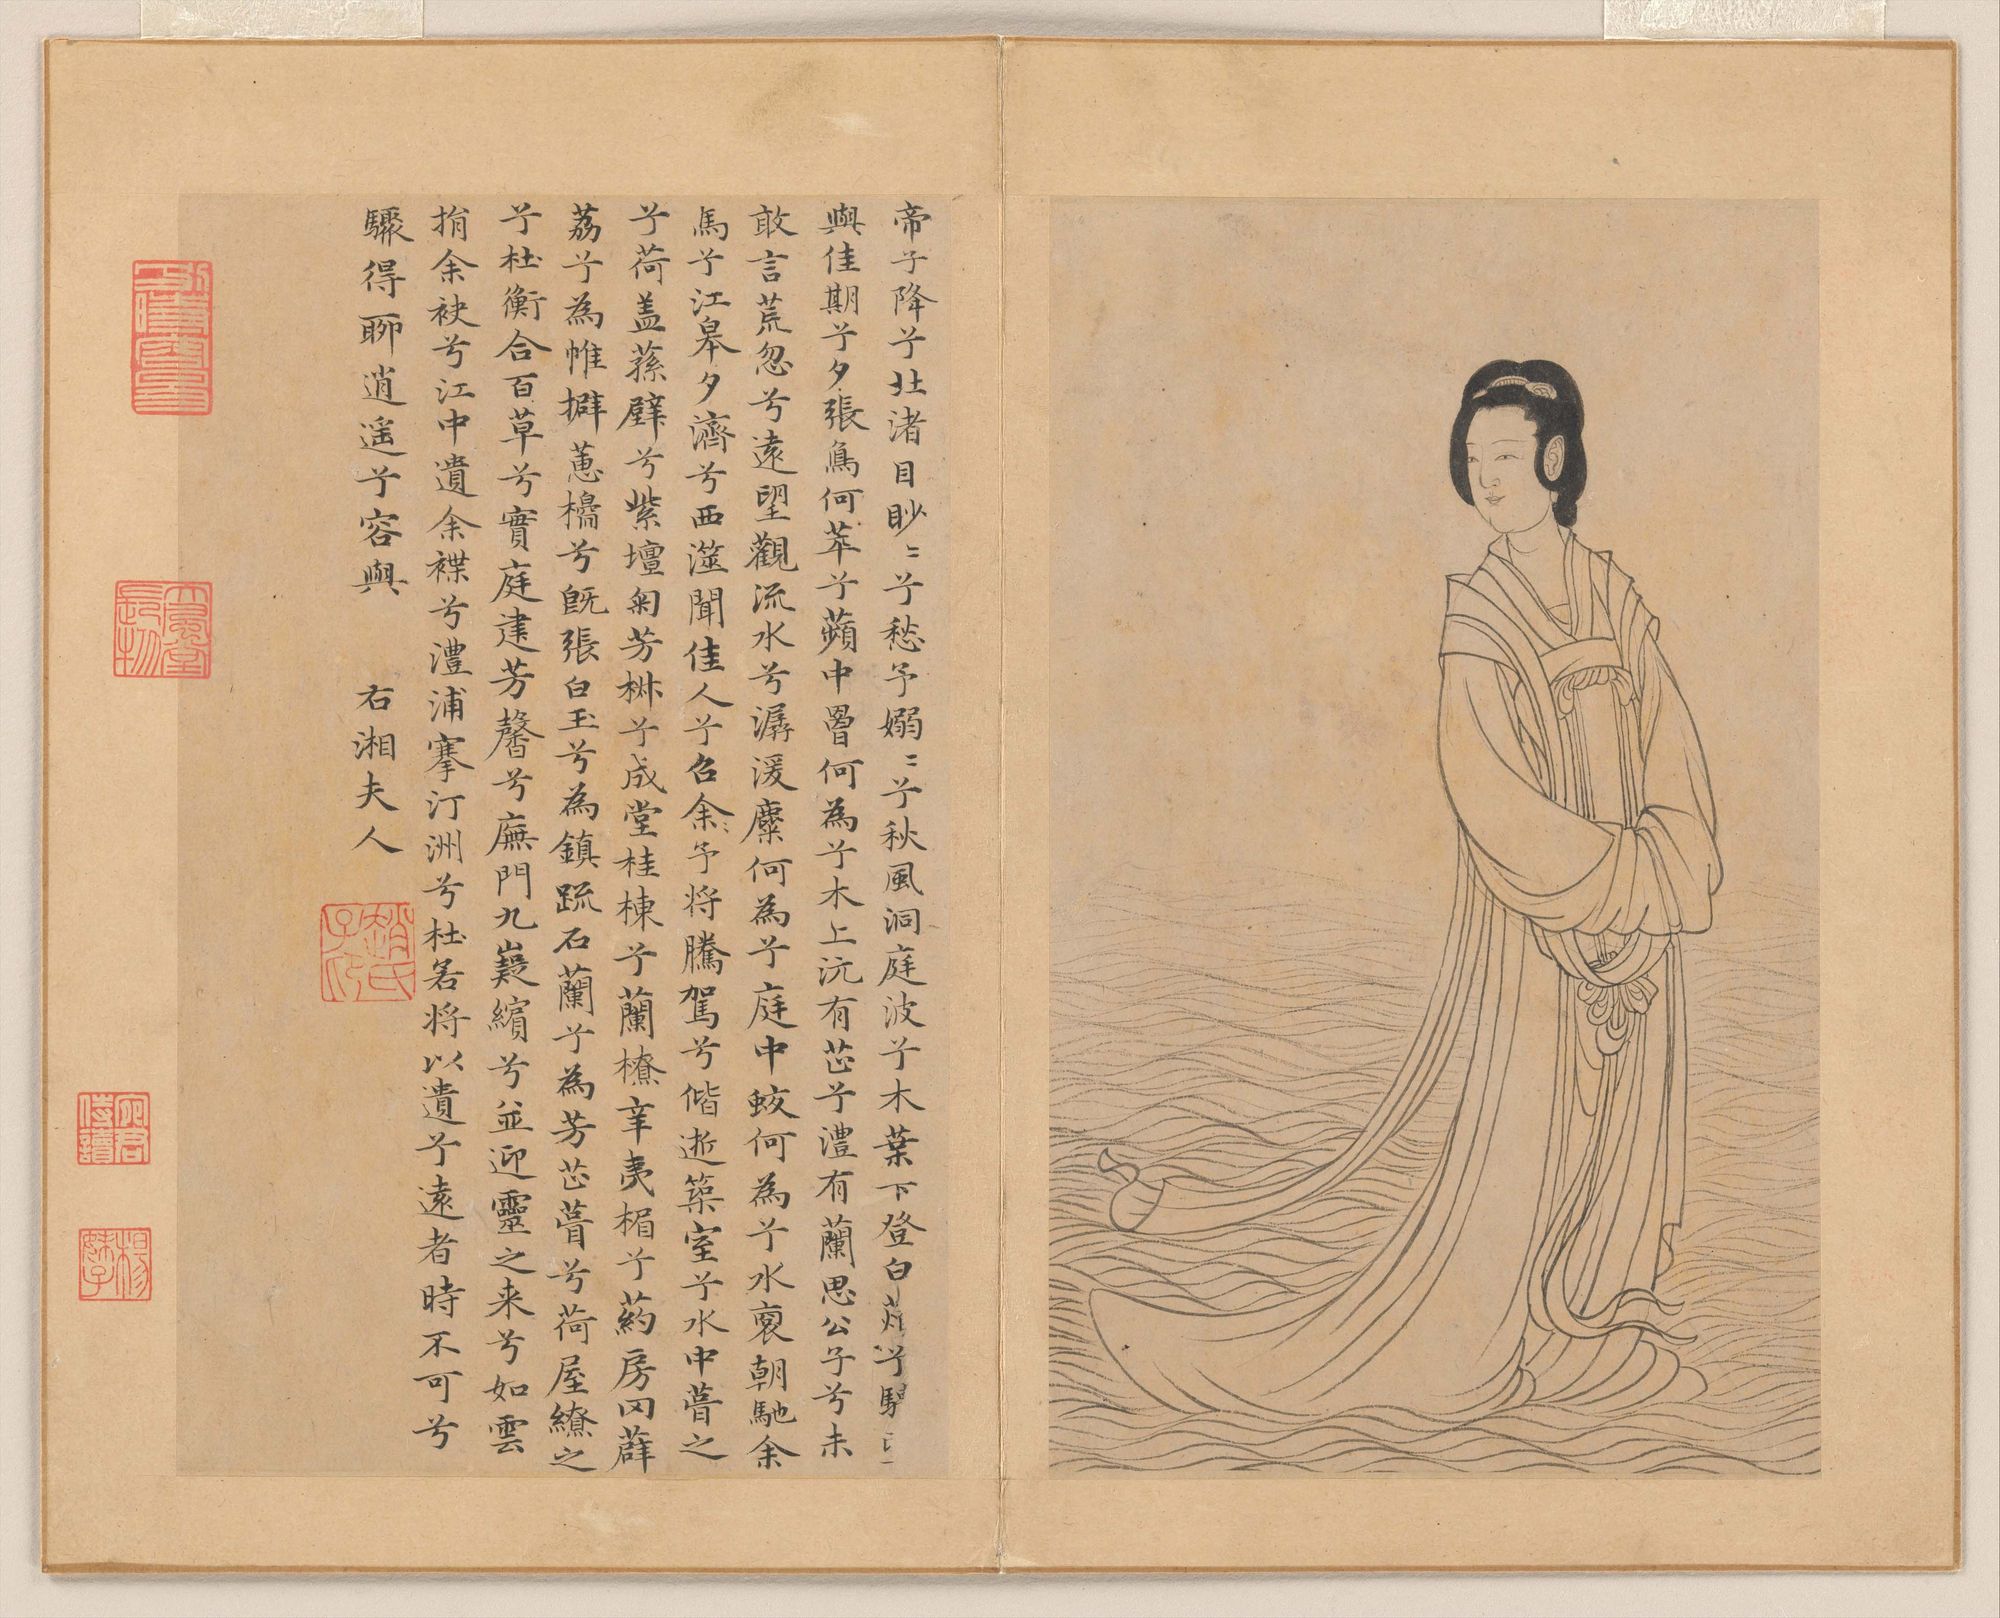 帝子降兮北渚目眇〻兮愁予嫋〻兮秋風洞庭波兮木葉下登白薠兮騁
與佳期兮夕張鳥何萃兮蘋中罾何為兮木上沅有芷兮澧有蘭思公子兮未
敢言荒忽兮遠望觀流水兮潺湲麋何為兮庭中蛟何為兮水裔朝馳余
馬兮江皋夕濟兮西澨聞佳人兮召余予将騰駕兮偕逝築室兮水中葺之
兮荷盖蓀壁兮紫壇匊芳椒兮成堂桂棟兮蘭橑辛夷楣兮葯房罔薜
荔兮為帷擗蕙櫋兮既張白玉兮為鎮疏石蘭兮為芳芷葺兮荷屋繚之
兮杜衡合百草兮實庭建芳馨兮廡門九嶷繽兮並迎靈之来兮如雲
捐余袂兮江中遺余褋兮澧浦搴汀洲兮杜若将以遺兮遠者時不可兮
驟得聊逍遥兮容與 右湘夫人
趙氏子印
楊妹子